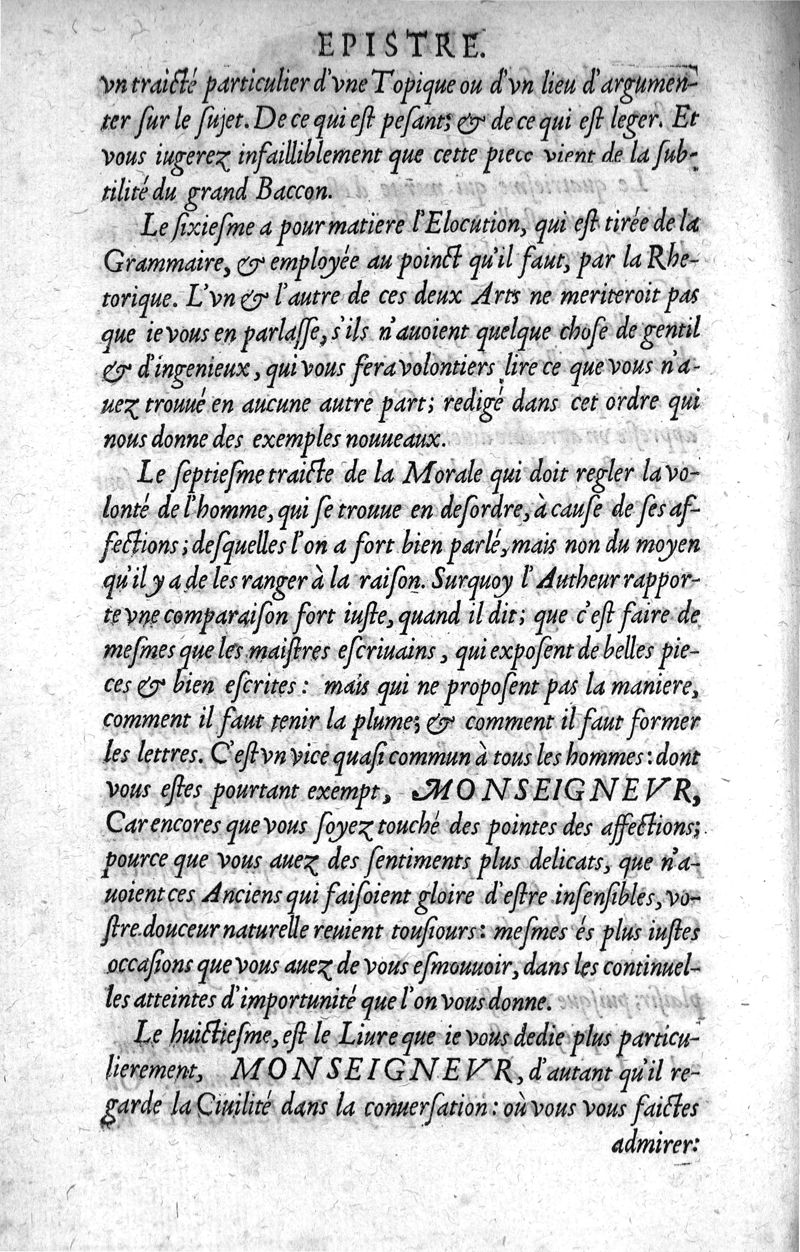 EPISTRE.
vn traicté particulier d'vne Topique ou d'vn lieu d'argumen-
ter ſur le ſujet. De ce qui eſt peſant; & de ce qui eſt leger. Et
vous iugerez infailliblement que cette piece vient de la ſub-
tilité du grand Baccon.
Le ſixieſme a pour matiere l'Elocution, qui eſt tirée de la
Grammaire, & employée au poinct qu'il faut, par la Rhe-
torique. L'vn & l'autre de ces deux Arts ne meriteroit pas
que ie vous en parlaſſe, s'ils n'auoient quelque choſe de gentil
& d'ingenieux, qui vous fera volontiers lire ce que vous n'a-
uez trouué en aucune autre part; redigé dans cet ordre qui
nous donne des exemples nouueaux.
Le ſeptieſme traicte de la Morale qui doit regler la vo-
lonté de l'homme, qui ſe trouue en deſordre, à cauſe de ſes af-
fections; deſquelles l'on a fort bien parlé, mais non du moyen
qu'il y a de les ranger à la raiſon. Surquoy l'Autheur rappor-
te vne comparaiſon fort iuſte, quand il dit; que c'eſt faire de
meſmes que les maiſtres eſcriuains, qui expoſent de belles pie-
ces & bien eſcrites: mais qui ne propoſent pas la maniere,
comment il faut tenir la plume; & comment il faut former
les lettres. C'eſt vn vice quaſi commun à tous les hommes: dont
vous eſtes pourtant exempt, MONSEIGNEVR,
Car encores que vous ſoyez touché des pointes des affections;
pource que vous auez des ſentiments plus delicats, que n'a-
uoient ces Anciens qui faiſoient gloire d'eſtre inſenſibles, vo-
ſtre douceur naturelle reuient touſiours: meſmes és plus iuſtes
occaſions que vous auez de vous eſmouuoir, dans les continuel-
les atteintes d'importunité que l'on vous donne.
Le huictieſme, eſt le Liure que ie vous dedie plus particu-
lierement, MONSEIGNEVR, d'autant qu'il re-
garde la Ciuilité dans la conuerſation: où vous vous faictes
admirer: